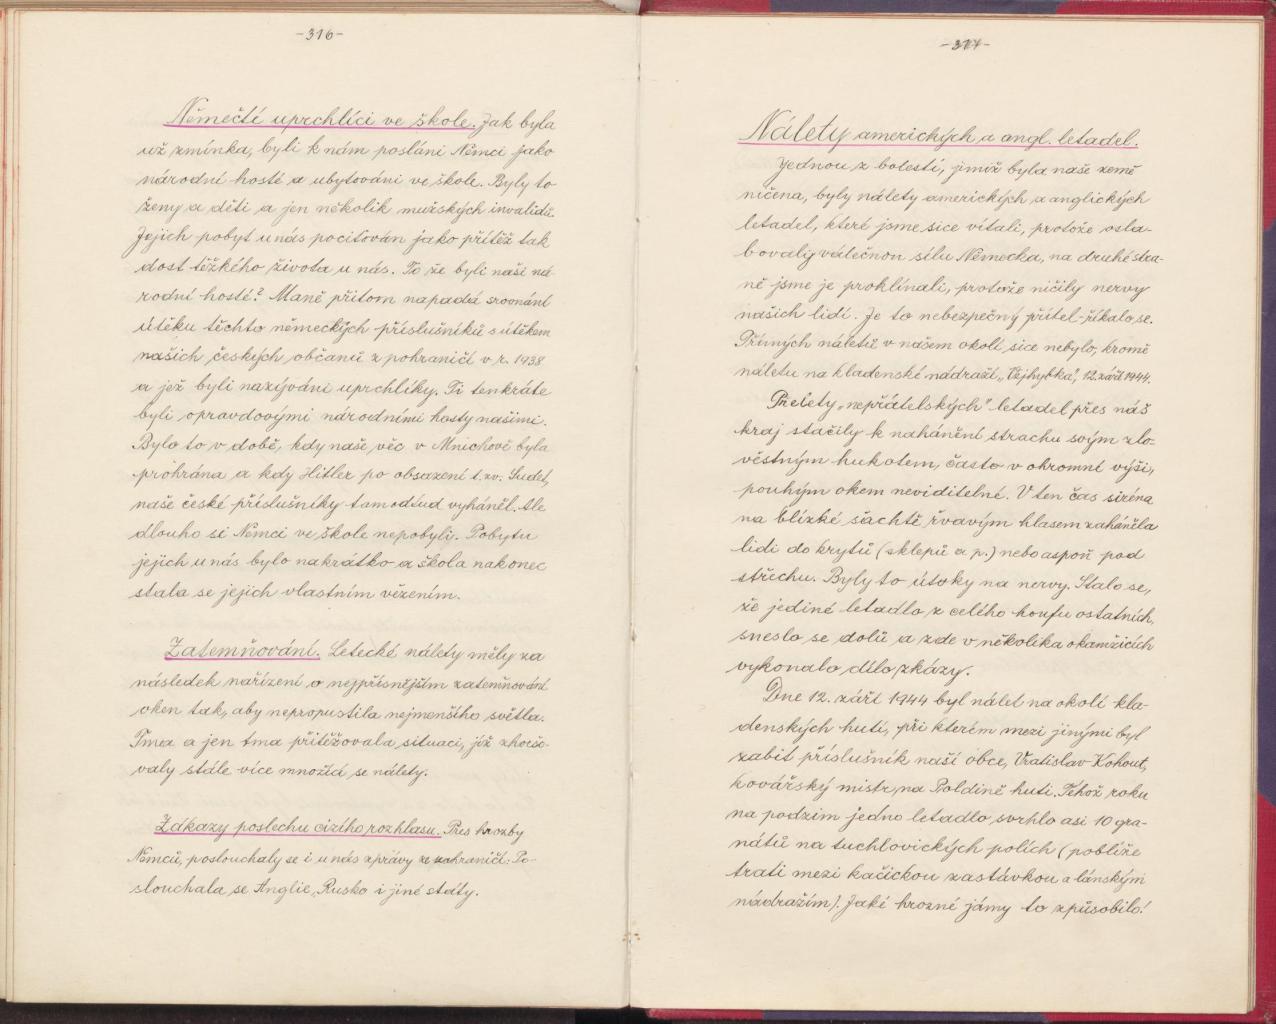 -316-
Němečtí uprchlíci ve škole. Jak byla
už zmínka, byli k nám posláni Němci jako
národní hosté a ubytováni ve škole. Byly to
ženy a děti a jen několik mužských invalidů.
Jejich pobyt u nás pociťován jako přítěž tak
dost těžkého života u nás. To že byli naši ná-
rodní hosté? Maně přitom napadá srovnání
útěku těchto německých příslušníků s útěkem
našich českých občanů z pohraničí v r. 1938
a jež byli nazýváni uprchlíky. Ti tenkráte
byli opravdovými národními hosty našimi.
Bylo to v době, kdy naše věc v Mnichově byla
prohrána a kdy Hitler po obsazení t. zv. Sudet,
naše české příslušníky tamodtud vyháněl. Ale
dlouho si Němci ve škole nepobyli. Pobytu
jejich u nás bylo nakrátko a škola nakonec
stala se jejich vlastním vězením.
Zatemňování. Letecké nálety měly za
následek nařízení o nejpřísnějším zatemňování
oken tak, aby nepropustila nejmenšího světla.
Tma a jen tma přitěžovala situaci, již zhoršo-
valy stále více množící se nálety.
Zákazy poslechu cizího rozhlasu. Přes hrozby
Němců, poslouchaly se i u nás zprávy ze zahraničí: Po-
slouchala se Anglie, Rusko i jiné státy.
-317-
Nálety amerických a angl. letadel.
Jednou z bolestí, jimiž byla naše země
ničena, byly nálety amerických a anglických
letadel, které jsme sice vítali, protože osla-
bovaly válečnou sílu Německa, na druhé stra-
ně jsme je proklínali, protože ničily nervy
našich lidí. Je to nebezpečný přítel - říkalo se.
Přímých náletů v našem okolí sice nebylo, kromě
náletu na kladenské nádraží „Vejhybka", 12. září 1944.
Přelety „nepřátelských" letadel přes náš
kraj stačily k nahánění strachu svým zlo-
věstným hukotem, často v ohromní výši,
pouhým okem neviditelné. V ten čas siréna
na blízké šachtě řvavým hlasem zaháněla
lidi do krytů (sklepů a p.) nebo aspoň pod
střechu. Byly to útoky na nervy. Stalo se,
že jediné letadlo z celého houfu ostatních,
sneslo se dolů a zde v několika okamžicích
vykonalo dílo zkázy.
Dne 12. září 1944 byl nálet na okolí kla-
denských hutí, při kterém mezi jinými byl
zabit příslušník naší obce, Vratislav Kohout,
kovářský mistr na Poldině huti. Téhož roku
na podzim jedno letadlo svrhlo asi 10 gra-
nátů na tuchlovických polích (poblíže
trati mezi kačickou zastávkou a lánským
nádražím). Jaké hrozné jámy to způsobilo!